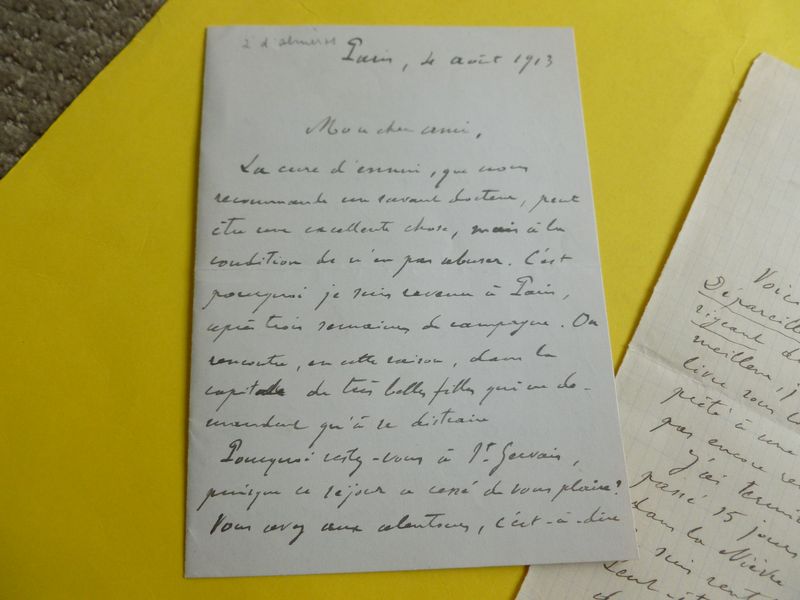 2 d'Alméras
Paris, 4 août 1913
Mon cher ami,
La cure d'ennui, que nous
recommande un savant docteur, peut
être une excellente chose, mais à la
condition de n'en pas abuser. C'est
pourquoi je suis revenu à Paris,
après trois semaines de campagne. On
rencontre, en cette saison, dans la
capitale de très belles filles qui ne de-
mandent qu'à se distraire
Pourquoi restez-vous à St Gervais,
puisque ce séjour a cessé de vous plaire?
Vous avez aux alentours, c'est-à-dire
Voici
Dépareillé
meilleur,
livre vous
prêté à une
pas encore
j'ai terminé
passé 15 jours
dans la Nièvre
suis
Peut-être